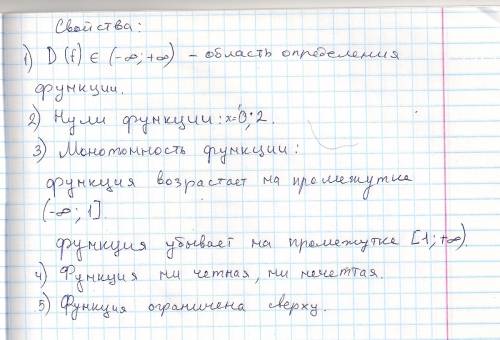 Свойства:
1) D (f) ∈ (-∞; +∞) - область определения
функции.
2) Нули функции: x=0; 2.
3) Монотонность функции:
функция возрастает на промежутке
(-∞; 1].
функция убывает на промежутке [1; +∞).
4) Функция ни четная, ни нечетная.
5) Функция ограничена сверху.